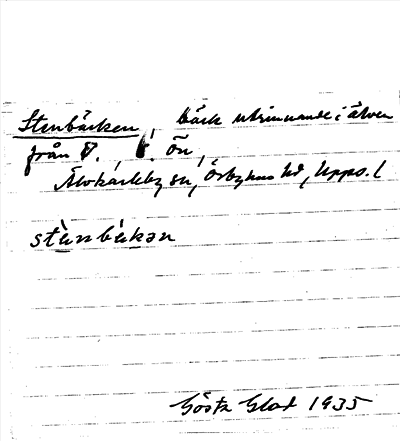 Stenbäcken, bäck utrinnande i älven
från V. Ön,
Älvkarleby sn, Örbyhus hd, Upps. l
stè̀nbäkan
Gösta Glad 1935